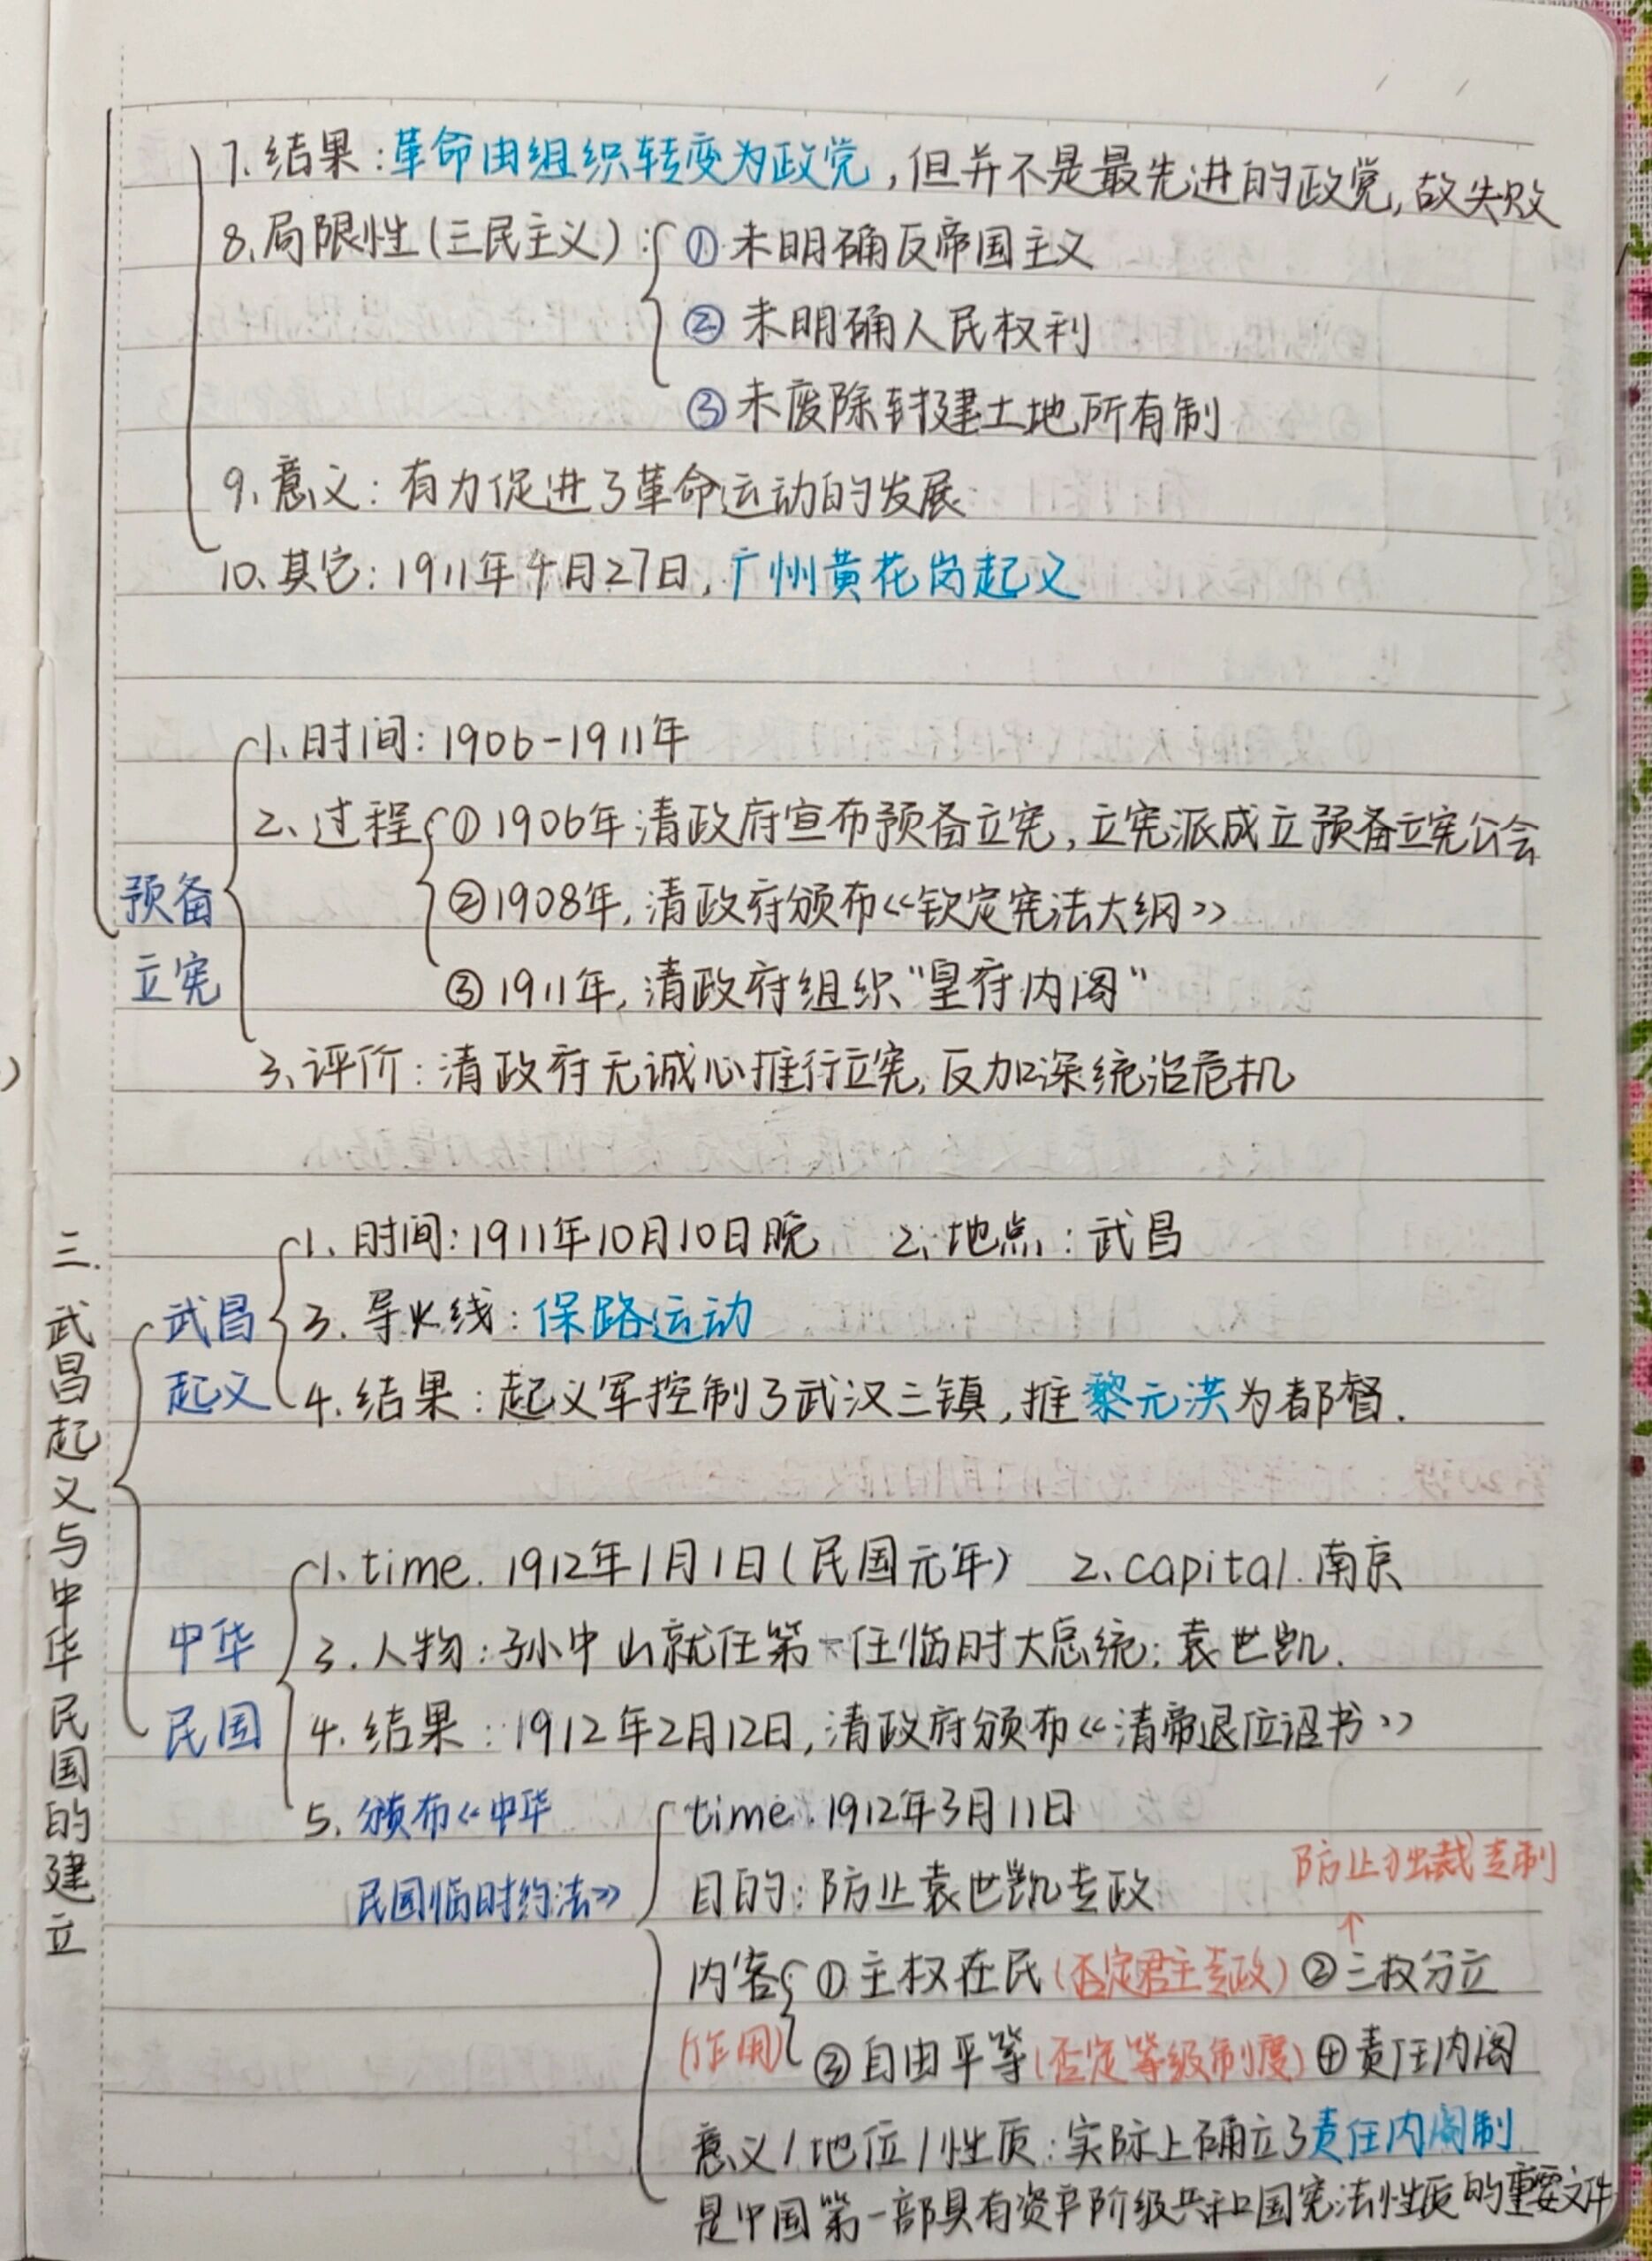 7.结果:革命由组织转变为政党,但并不是最先进的政党,故失败
8.局限性(三民主义):①未明确反帝国主义
②未明确人民权利
③未废除封建土地所有制
9.意义:有力促进了革命运动的发展
10.其它:1911年4月27日,广州黄花岗起义
预备立宪
1.时间:1906-1911年
2、过程①1906年清政府宣布预备立宪,立宪派成立预备立宪公会
②1908年,清政府颁布《钦定宪法大纲》
③1911年,清政府组织"皇府内阁"
3、评价:清政府无诚心推行立宪,反加深统治危机
三.武昌起义与中华民国的建立
武昌起义
1.时间:1911年10月10日晚 2.地点:武昌
3.导火线:保路运动
4.结果:起义军控制了武汉三镇,推黎元洪为都督.
中华民国
1.time.1912年1月1日(民国元年) 2.capital.南京
3.人物:孙中山就任第一任临时大总统;袁世凯.
4.结果:1912年2月12日,清政府颁布《清帝退位诏书》
5.颁布《中华民国临时约法》
time.1912年3月11日
目的:防止袁世凯专政
防止独裁专制
↑
内容①主权在民(否定君主专政)②三权分立
(作用)③自由平等(否定等级制度)④责任内阁
意义/地位/性质:实际上确立了责任内阁制
是中国第一部具有资产阶级共和国宪法性质的重要文件